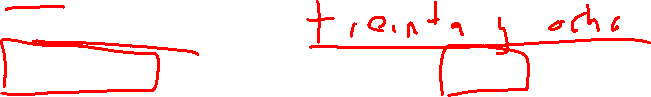 treinta y ocho